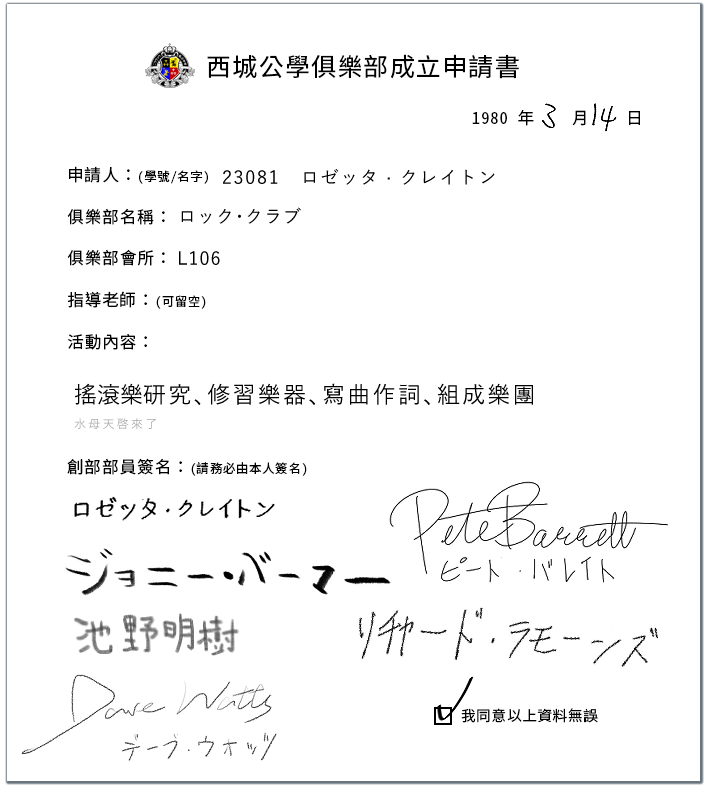 西城公學俱樂部成立申請書
1980 年 3 月 14 日
申請人：(學號/名字) 23081 ロゼッタ・クレイトン
俱樂部名稱：ロック・クラブ
俱樂部會所：L106
指導老師：(可留空)
活動內容：
搖滾樂研究、修習樂器、寫曲作詞、組成樂團
水母天啓來了
創部部員簽名：(請務必由本人簽名)
ロゼッタ・クレイトン
Pete Barrett
ピート・バレイト
ジョニー・バーマー
池野明樹
リチャード・ラモーンズ
Dave Watts
デーブ・ウオッツ
我同意以上資料無誤